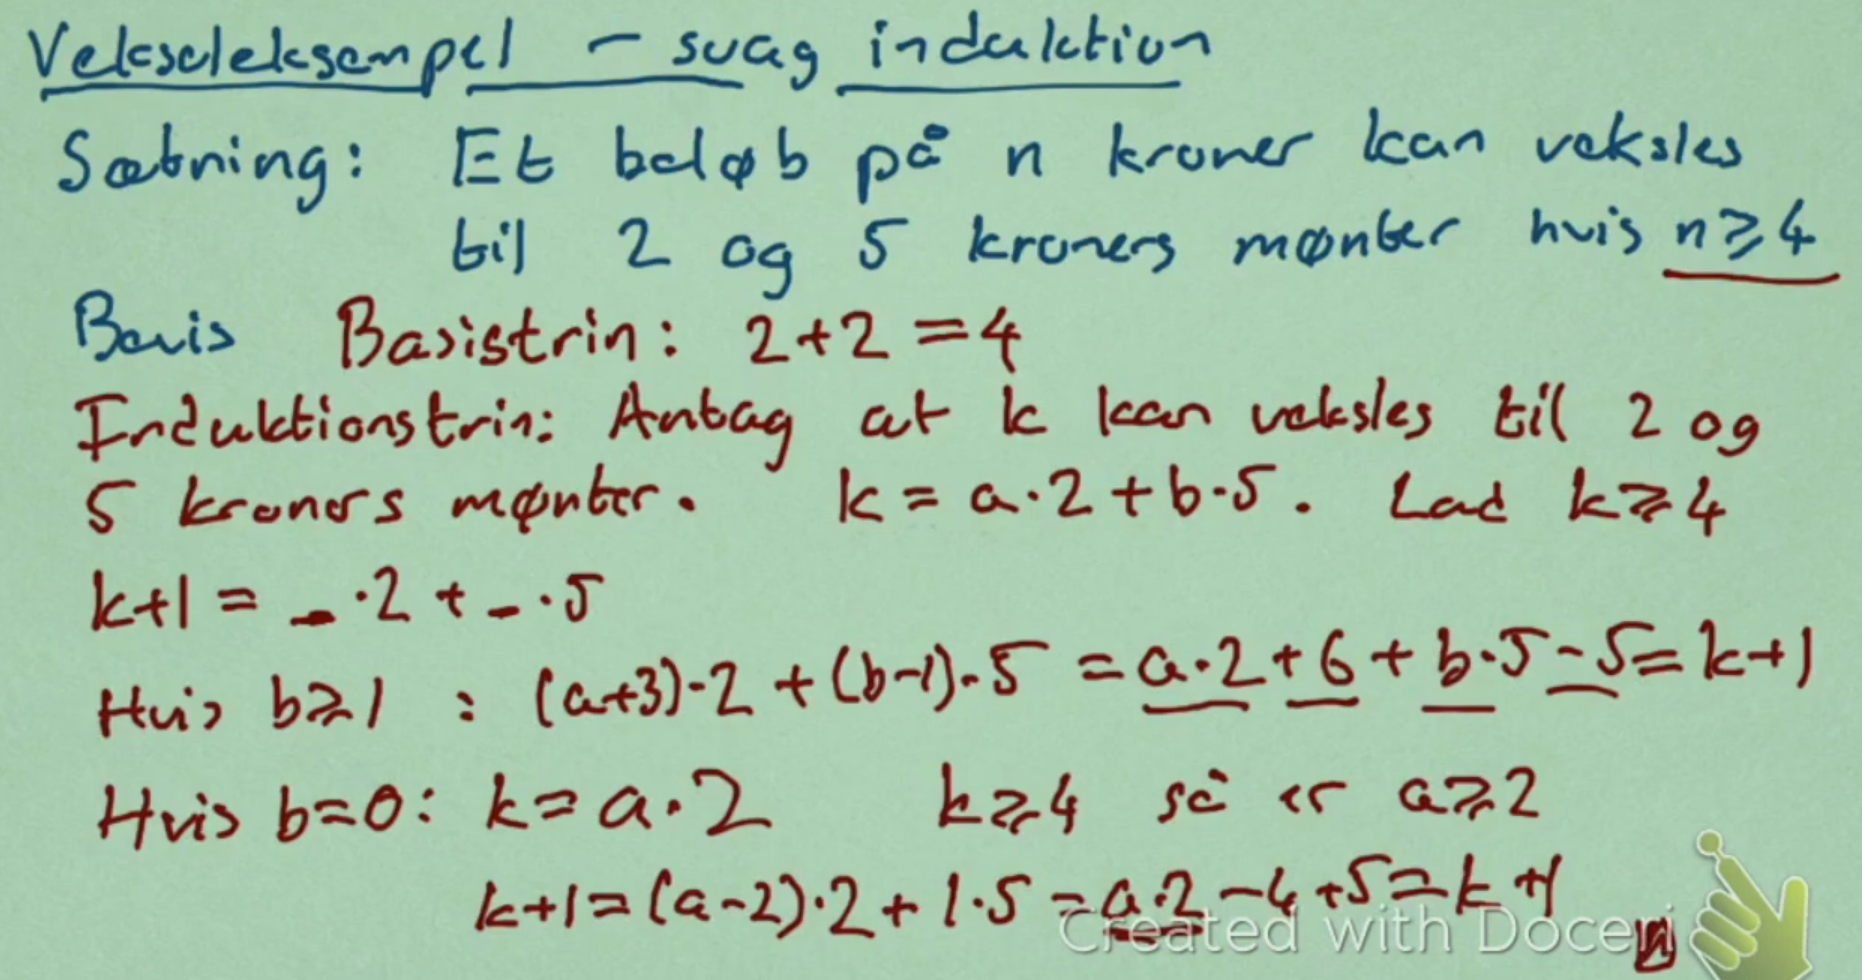 Veksleeksempel - svag induktion
Sætning: Et beløb på n kroner kan veksles
til 2 og 5 kroners mønter hvis n≥4
Bevis Basistrin: 2+2=4
Induktionstrin: Antag at k kan veksles til 2 og
5 kroners mønter. k = a·2 + b·5. Lad k≥4
k+1 = _·2 + _·5
Hvis b≥1 : (a+3)·2 + (b-1)·5 = a·2 + 6 + b·5 - 5 = k+1
Hvis b=0: k = a·2 k≥4 så er a≥2
k+1 = (a-2)·2 + 1·5 = a·2 - 4 + 5 = k+1
Created with Doceri